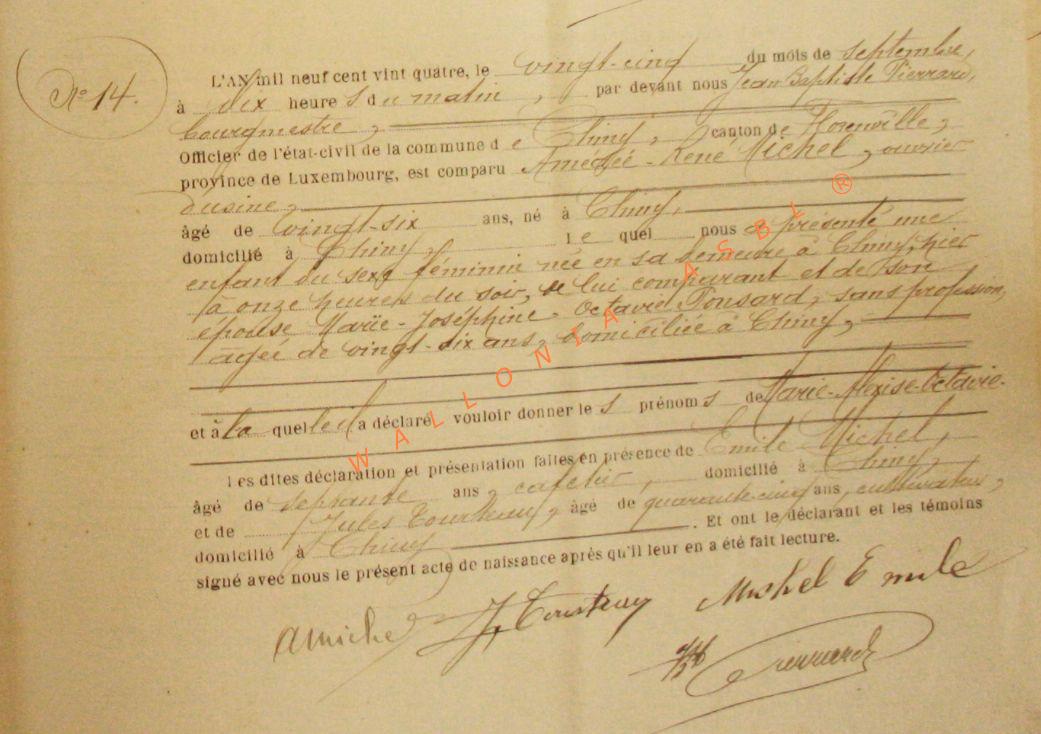 No 14.
L'AN mil neuf cent vint quatre, le vingt-cinq du mois de septembre,
à dix heure s du matin, par devant nous Jean Baptiste Pierrard,
bourgmestre,
Officier de l'état-civil de la commune d e Chiny, canton de Florenville,
province de Luxembourg, est comparu Amédée-René Michel, ouvrier
d'usine,
âgé de vingt-six ans, né à Chiny,
domicilié à Chiny, l e quel nous a présenté une
enfant du sexe féminin née en sa demeure à Chiny, hier
à onze heures du soir, de lui comparant et de son
épouse Marie-Joséphine-Octavie Ponsard, sans profession,
agée de vingt-six ans, domiciliée à Chiny,
et à la quel le il a déclaré vouloir donner le s prénom s de Marie-Alexise-Octavie.
Les dites déclaration et présentation faites en présence de Emile Michel,
âgé de septante ans, cafetier, domicilié à Chiny,
et de Jules Tourteau, âgé de quarante-cinq ans, cultivateur,
domicilié à Chiny. Et ont le déclarant et les témoins
signé avec nous le présent acte de naissance après qu'il leur en a été fait lecture.
AMichel J, Tourteau Michel Emile
JB Pierrard
WALLONIA ASBL ®